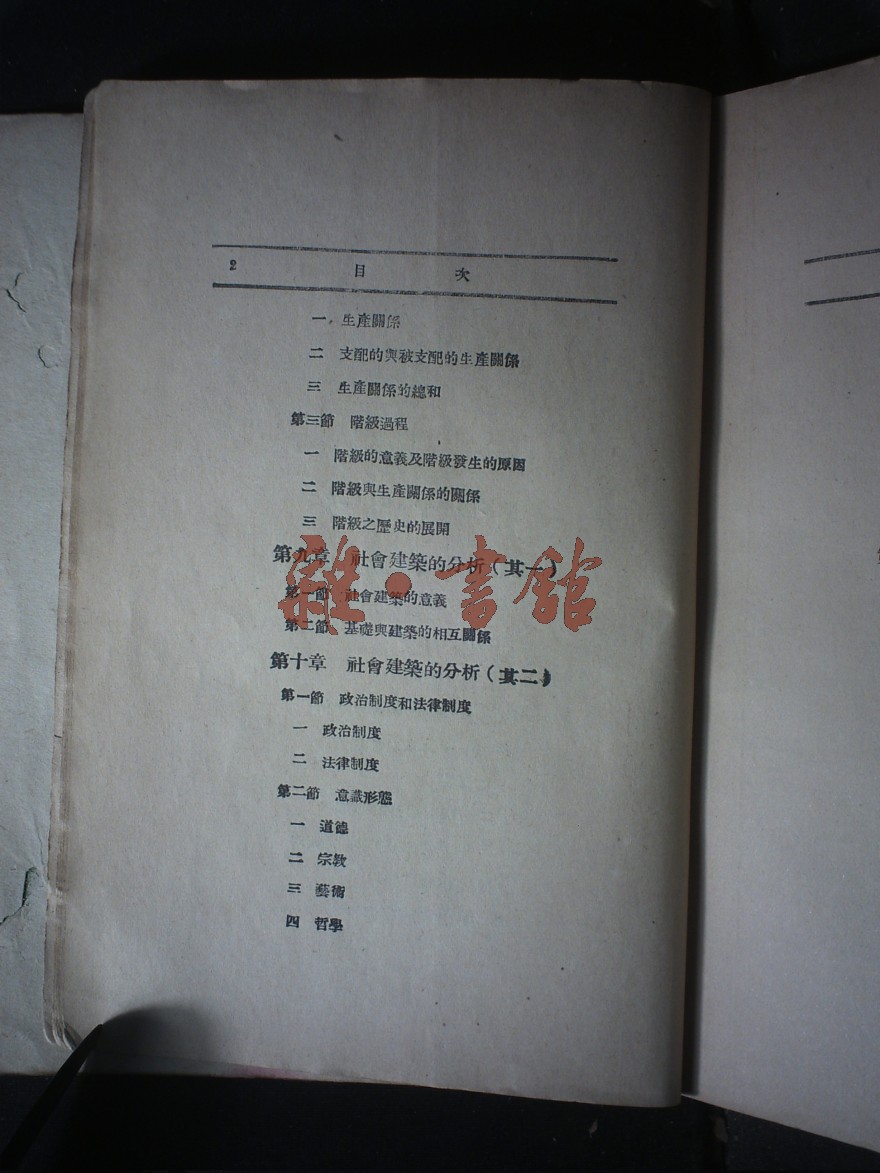 2 目 次
一 生產關係
二 支配的與被支配的生產關係
三 生產關係的總和
第三節 階級過程
一 階級的意義及階級發生的原因
二 階級與生產關係的關係
三 階級之歷史的展開
第九章 社會建築的分析(其一)
第一節 社會建築的意義
第二節 基礎與建築的相互關係
第十章 社會建築的分析(其二)
第一節 政治制度和法律制度
一 政治制度
二 法律制度
第二節 意識形態
一 道德
二 宗教
三 藝術
四 哲學
雜·書館